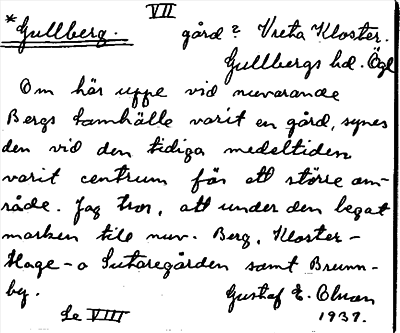 VII
*Gullberg. gård? Vreta Kloster.
Gullbergs hd. Ögl
Om här uppe vid nuvarande
Bergs samhälle varit en gård, synes
den vid den tidiga medeltiden
varit centrum för ett större om-
råde. Jag tror, att under den legat
marken till nuv. Berg, Kloster-
Hage- o Sutaregården samt Brunn-
by. Gustaf E. Olson
Se VIII 1937.